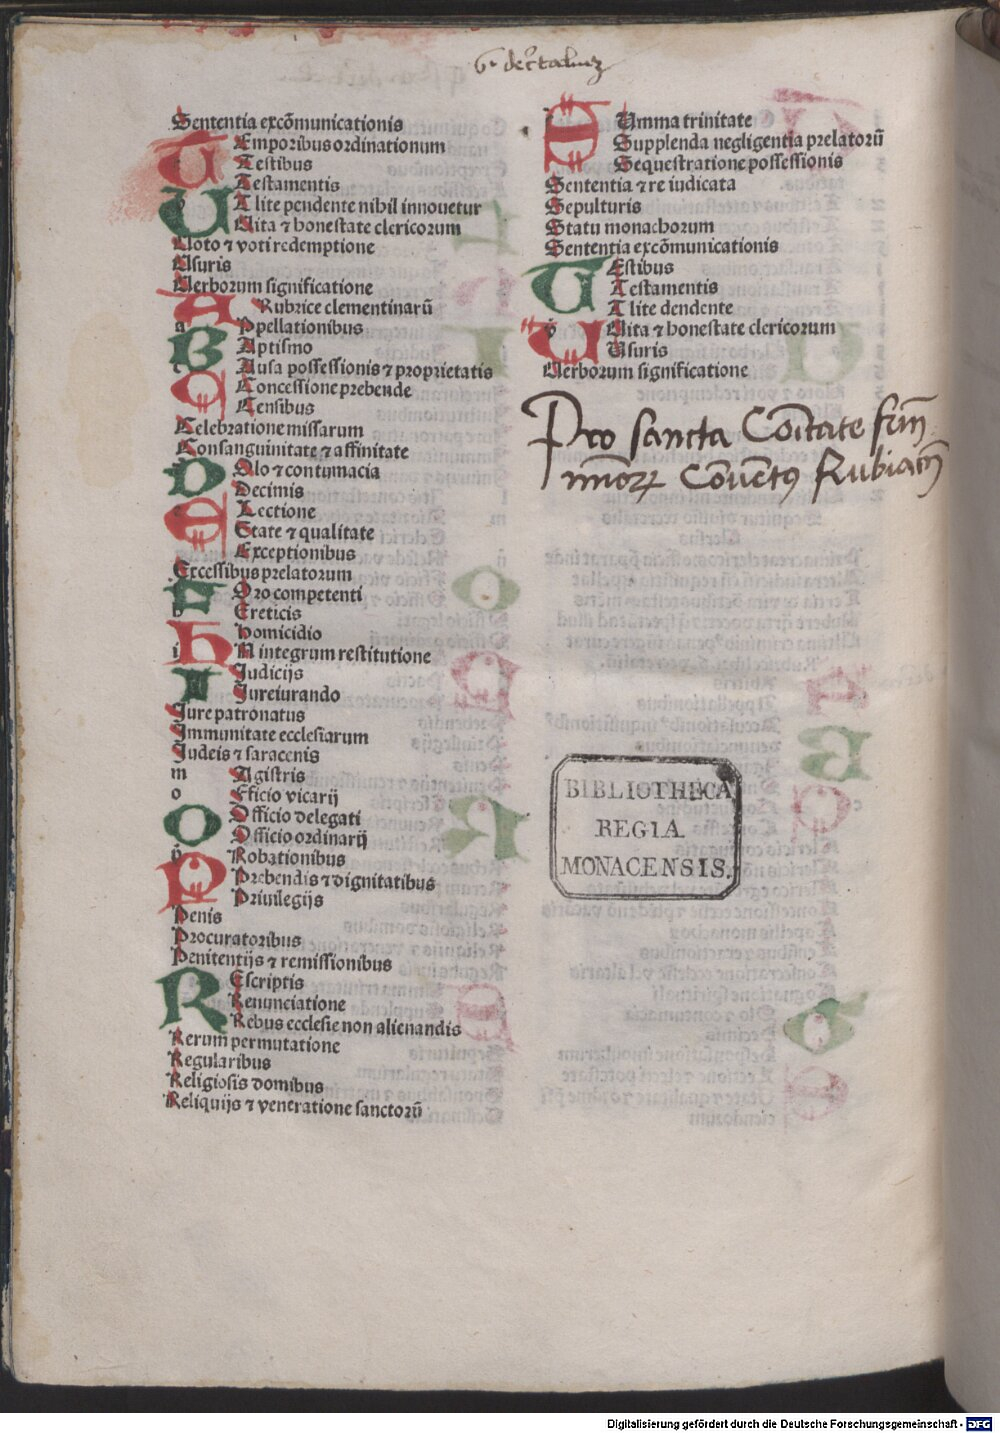 6. decretalium
Sententia excōmunicationis
T Emporibus ordinationum
Testibus
Testamentis
V T lite pendente nihil innouetur
Uita ⁊ honestate clericorum
Uoto ⁊ voti redemptione
Usuris
Uerborum significatione
Rubrice clementinarū
A Ppellationibus
B Aptismo
C Ausa possessionis ⁊ proprietatis
Concessione prebende
Censibus
Celebratione missarum
Consanguinitate ⁊ affinitate
D Olo ⁊ contumacia
Decimis
E Lectione
Etate ⁊ qualitate
Exceptionibus
Excessibus prelatorum
F Oro competenti
h Ereticis
Homicidio
I N integrum restitutione
Judicijs
Jureiurando
Jure patronatus
Immunitate ecclesiarum
Judeis ⁊ saracenis
m Agistris
o Fficio vicarij
Officio delegati
Officio ordinarij
P Robationibus
Prebendis ⁊ dignitatibus
Priuilegijs
Penis
Procuratoribus
Penitentijs ⁊ remissionibus
R Escriptis
Renunciatione
Rebus ecclesie non alienandis
Rerum permutatione
Regularibus
Religiosis domibus
Reliquijs ⁊ veneratione sanctorū
S Umma trinitate
Supplenda negligentia prelatorū
Sequestratione possessionis
Sententia ⁊ re iudicata
Sepulturis
Statu monachorum
Sententia excōmunicationis
T Estibus
Testamentis
V T lite dendente
Uita ⁊ honestate clericorum
Usuris
Uerborum significatione
Pro sancta Cōitate
Rubiacn̄
BIBLIOTHECA
REGIA
MONACENSIS.
Digitalisierung gefördert durch die Deutsche Forschungsgemeinschaft - DFG